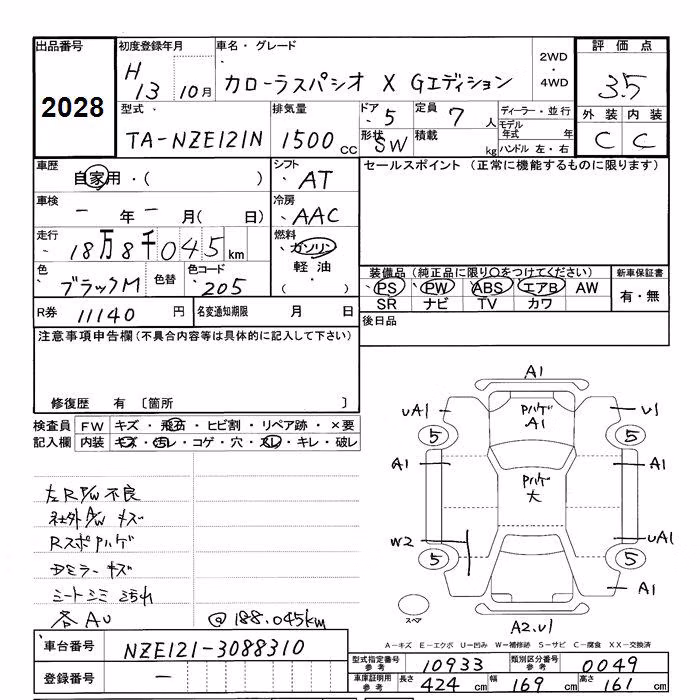 出品番号
2028
初度登録年月
H 13 10月
車名・グレード
カローラスパシオ X Gエディション
2WD
・
4WD
評価点
3.5
外装 内装
C C
型式
TA-NZE121N
排気量
1500 CC
ドア 5
定員 7 人
形状 SW
積載 kg
ディーラー・並行
モデル年式 年
ハンドル 左・右
車歴
自家用・( )
シフト
AT
セールスポイント (正常に機能するものに限ります)
車検
ー 年 ー 月( 日)
冷房
AAC
走行
18万8千045km
燃料
ガソリン
軽油
・( )
色
ブラックM
色替
色コード
205
装備品 (純正品に限り○をつけてください)
PS PW ABS エアB AW
SR ナビ TV カワ
新車保証書
有・無
R券 11140 円
名変通知期限 月 日
後日品
注意事項申告欄(不具合内容等は具体的に記入して下さい)
修復歴 有 〔箇所 〕
検査員 FW キズ・飛石・ヒビ割・リペア跡・×要
記入欄 内装 キズ・汚レ・コゲ・穴・スレ・キレ・破レ
左R P/W 不良
社外A/W キズ
Rスポ Pハゲ
Dミラーキズ
シートシミ 汚れ
各AU
@188.045km
A1
UA1 Pハゲ A1 U1
5 5
A1 Pハゲ 大 A1
W2 UA1
5 5
A1
スペア
A2.U1
A-キズ E-エクボ U-凹み W-補修跡 S-サビ C-腐食 XX-交換済
車台番号 NZE121-3088310
登録番号 ー
型式指定番号 参考 10933
類別区分番号 参考 0049
車庫証明用 参考 長さ 424 cm 幅 169 cm 高さ 161 cm